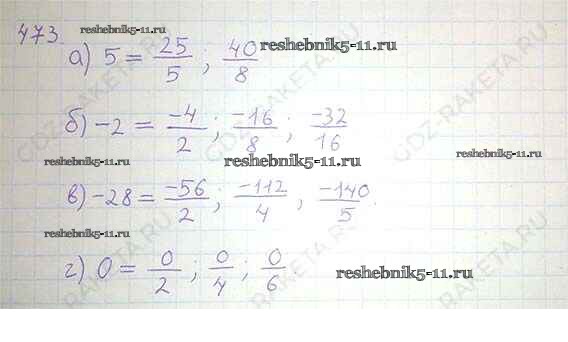 473.
reshebnik5-11.ru
а) 5 = 25/5 ; 40/8
reshebnik5-11.ru
б) -2 = -4/2 ; -16/8 ; -32/16
reshebnik5-11.ru
reshebnik5-11.ru
reshebnik5-11.ru
в) -28 = -56/2 ; -112/4 , -140/5 .
reshebnik5-11.ru
г) 0 = 0/2 ; 0/4 ; 0/6
reshebnik5-11.ru
GDZ-RAKETA.RU
GDZ-RAKETA.RU
GDZ-RAKETA.RU
GDZ-RAKETA.RU